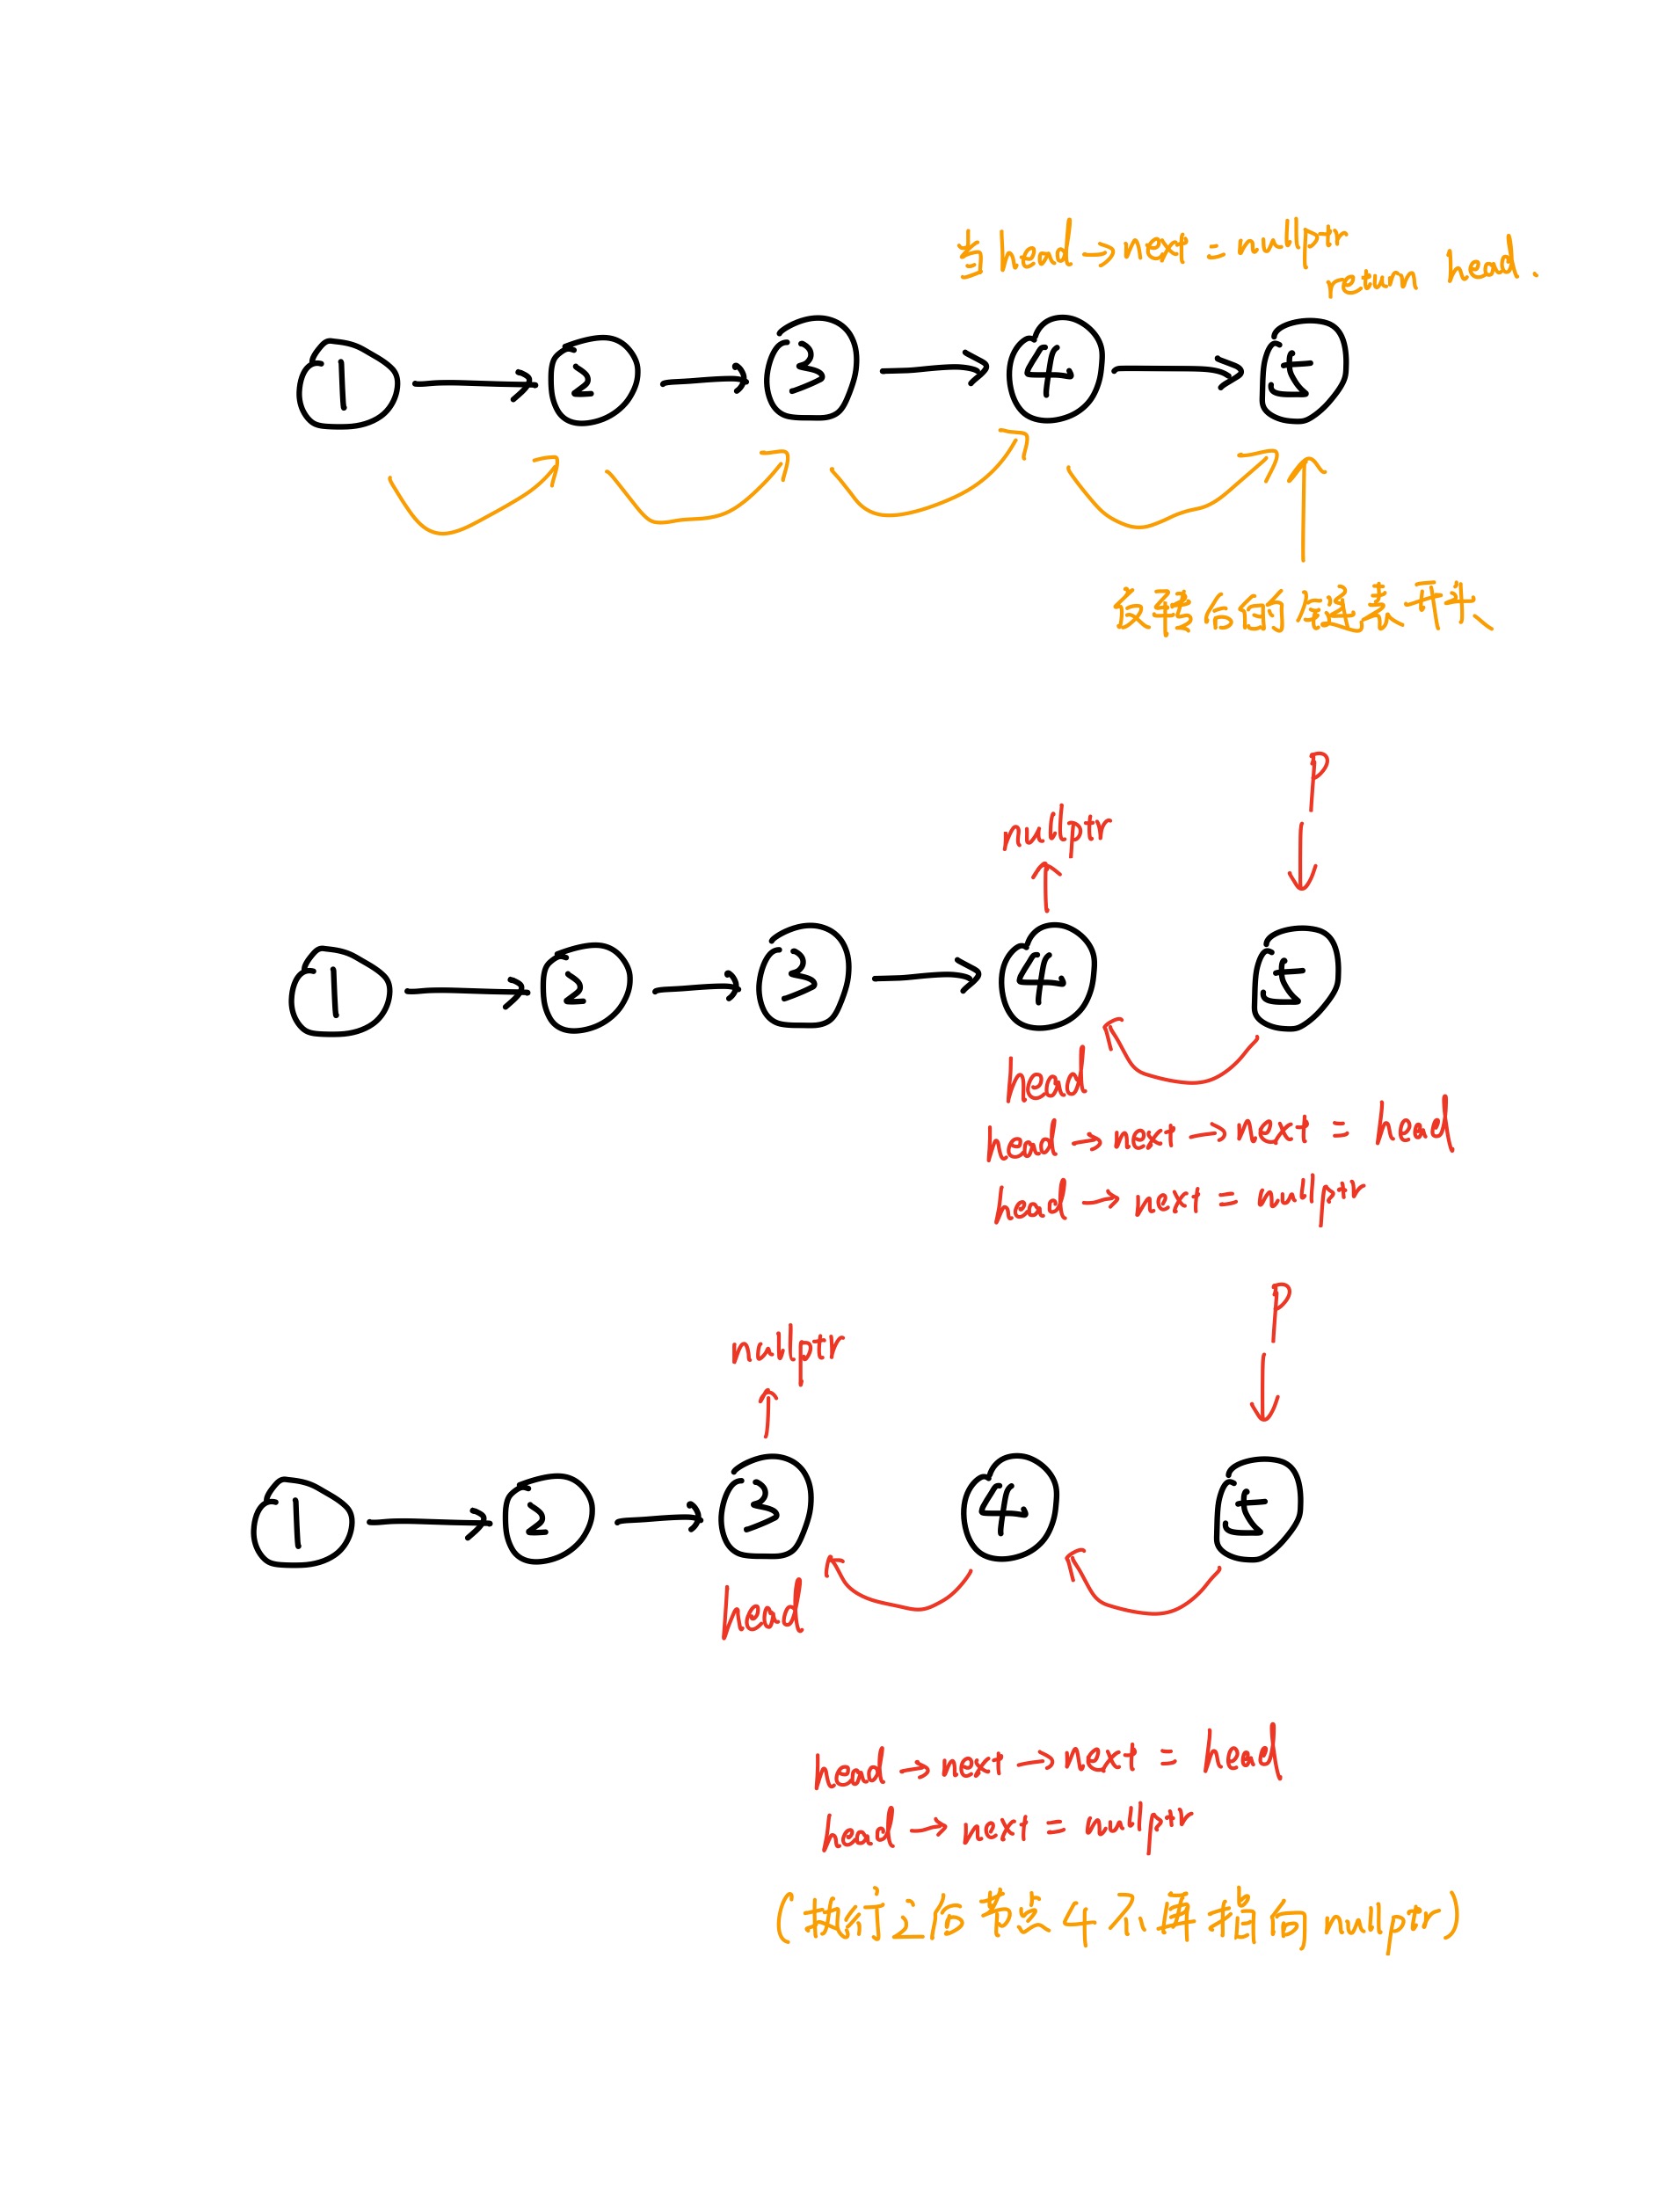 当 head → next = nullptr
return head.
1 → 2 → 3 → 4 → 5
反转后的 链表开头
P
nullptr
1 → 2 → 3 → 4 5
head
head → next → next = head
head → next = nullptr
P
nullptr
1 → 2 → 3 4 5
head
head → next → next = head
head → next = nullptr
(执行之后节点4不再指向nullptr)